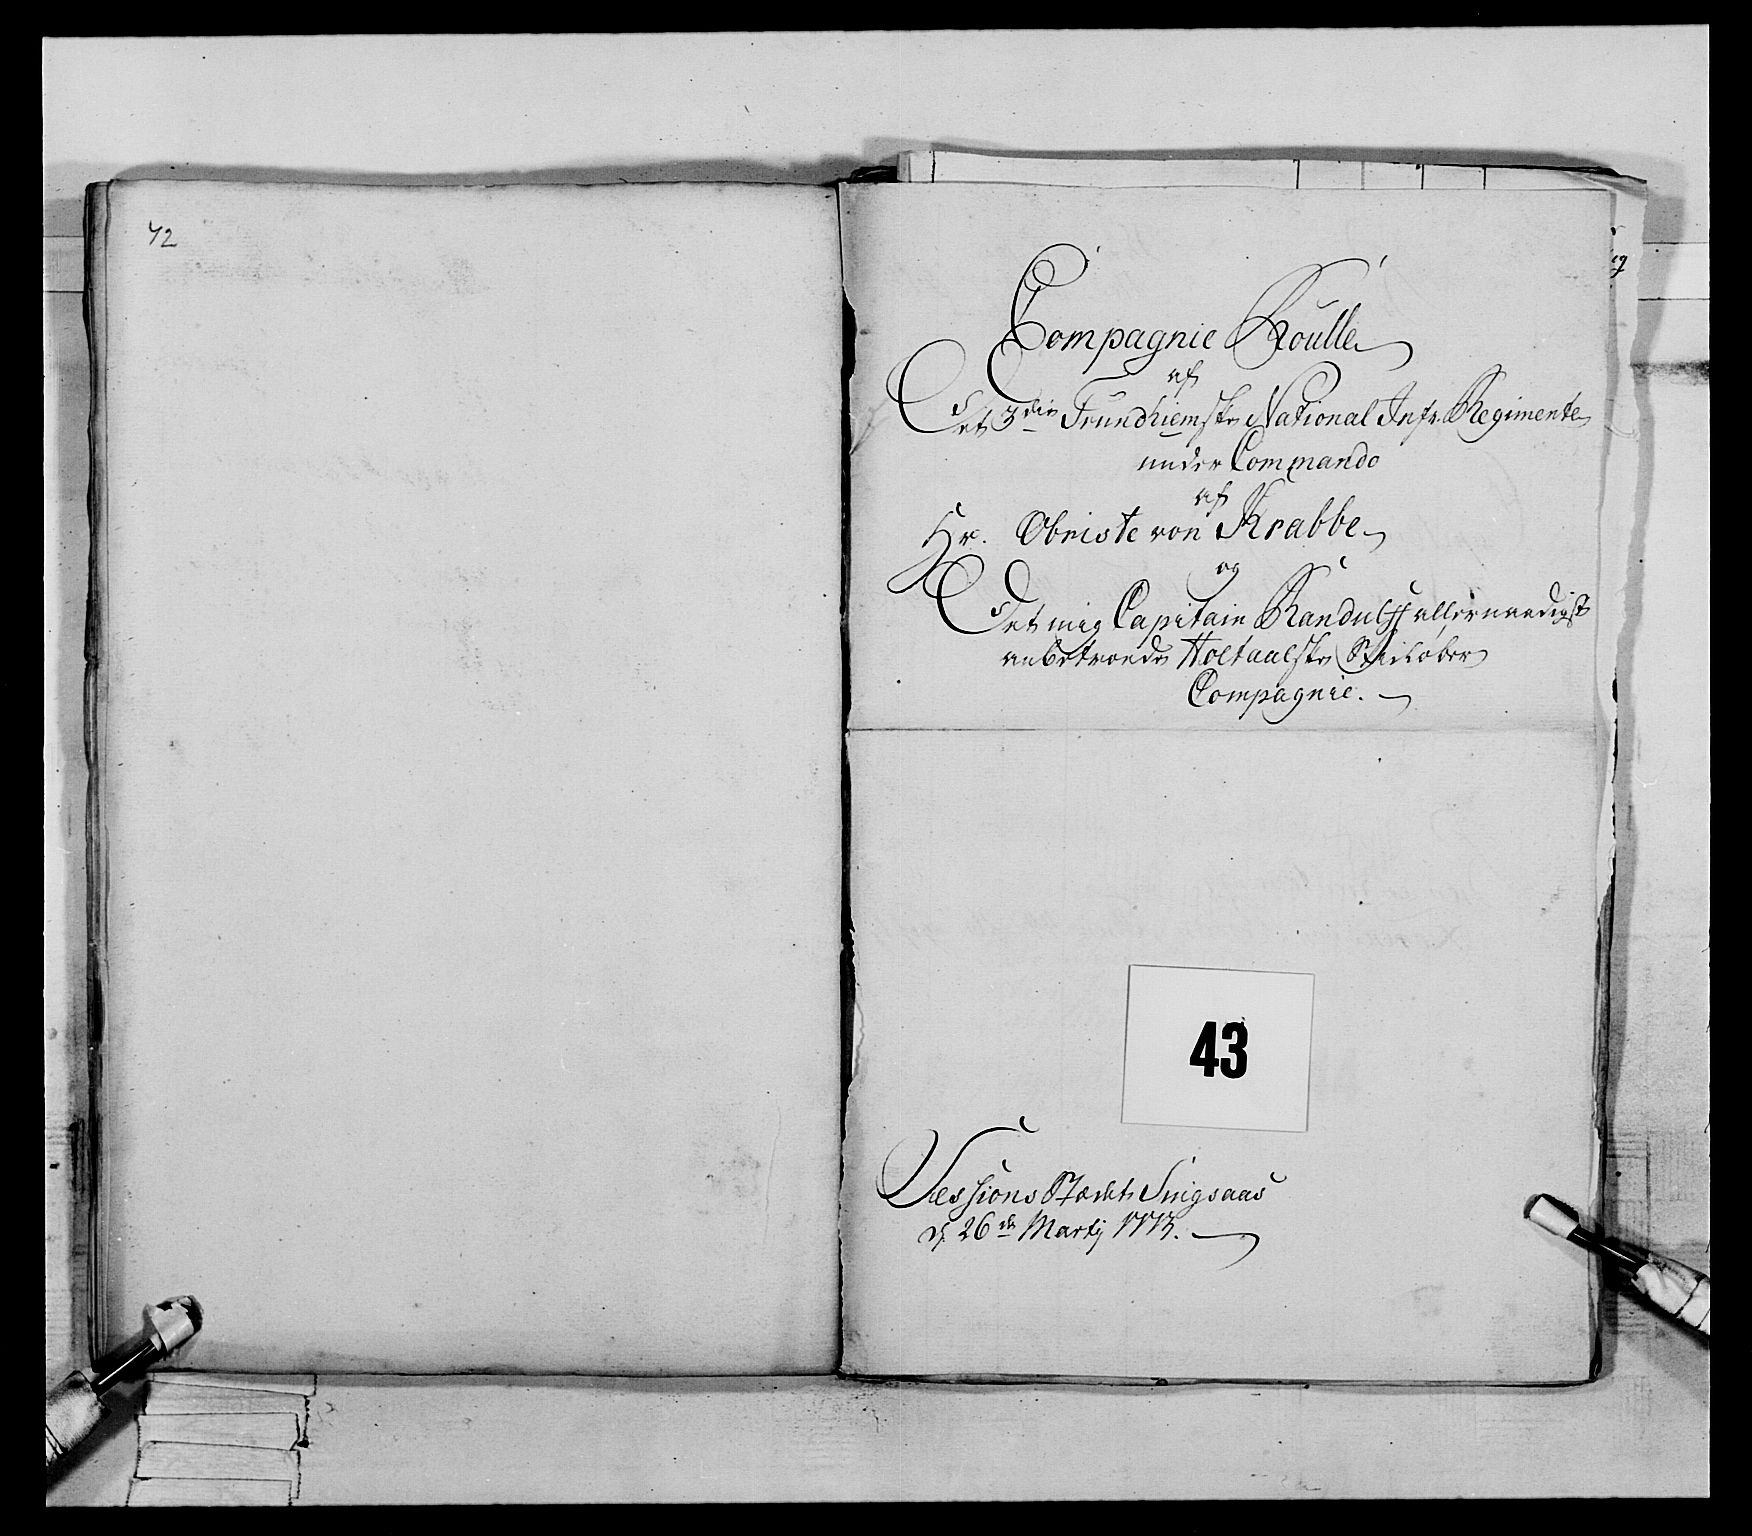 42
Compagnie Roulle
af
Det 3die Trundhiemske National Infr. Regimente
under Commando
af
Hr. Obriste von Krabbe
og
Det mig Capitain Randulff allernaadigst
anbetroede Holtaalske Skiløber
Compagnie.
43
Sessions Stædet Singsaas
d. 26de Martij 1773.